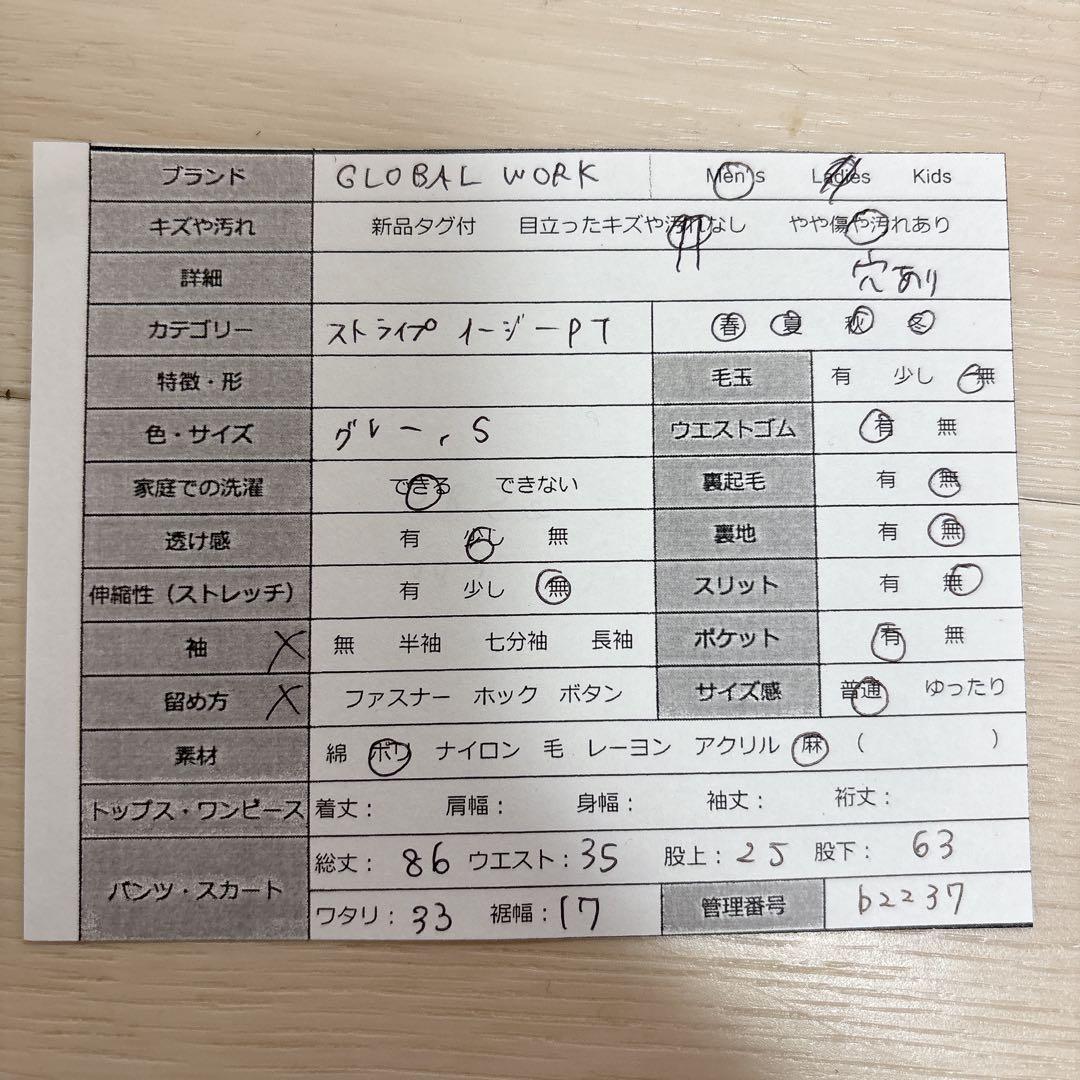 ブランド GLOBAL WORK Men's Ladies Kids
キズや汚れ 新品タグ付 目立ったキズや汚れなし やや傷や汚れあり
詳細 穴あり
カテゴリー ストライプ イージーPT 春 夏 秋 冬
特徴・形 毛玉 有 少し 無
色・サイズ グレー, S ウエストゴム 有 無
家庭での洗濯 できる できない 裏起毛 有 無
透け感 有 少し 無 裏地 有 無
伸縮性（ストレッチ） 有 少し 無 スリット 有 無
袖 X 無 半袖 七分袖 長袖 ポケット 有 無
留め方 X ファスナー ホック ボタン サイズ感 普通 ゆったり
素材 綿 ポリ ナイロン 毛 レーヨン アクリル 麻 （ ）
トップス・ワンピース 着丈： 肩幅： 身幅： 袖丈： 裄丈：
パンツ・スカート 総丈： 86 ウエスト：35 股上：25 股下： 63
ワタリ：33 裾幅：17 管理番号 b2237